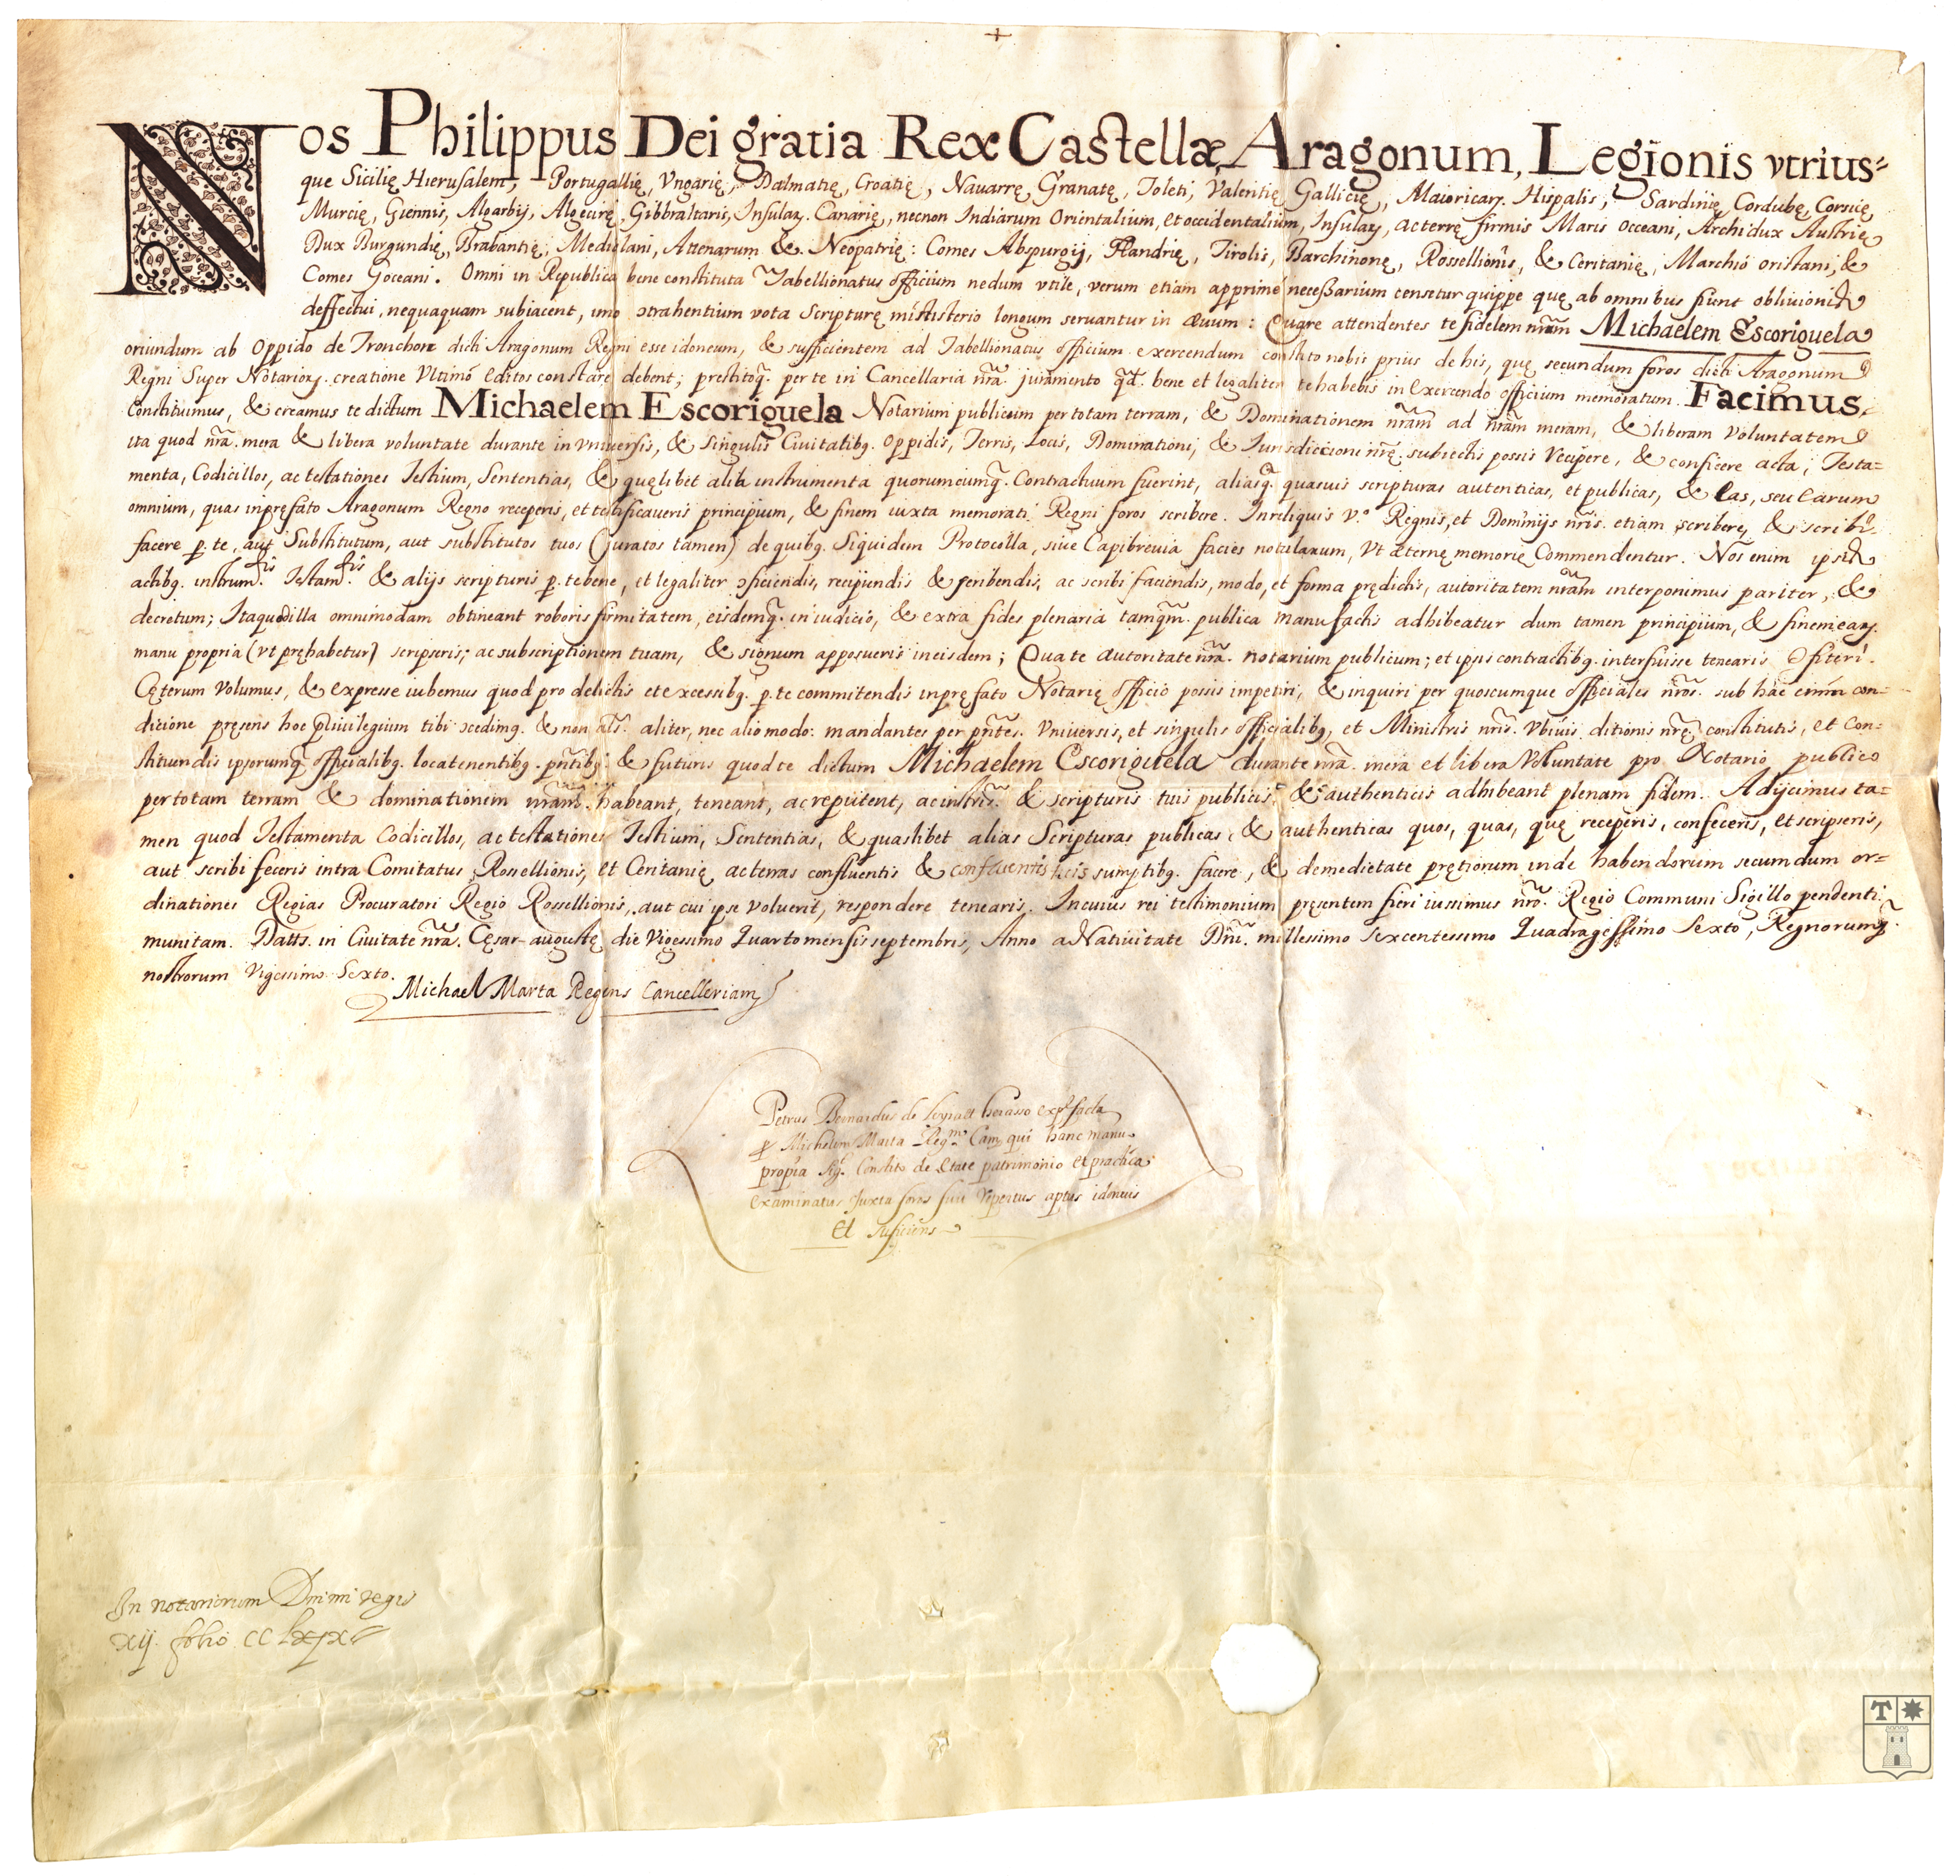 Nos Philippus Dei gratia Rex Castellæ, Aragonum, Legionis vtrius=
que Sicilię Hierusalem, Portugallię, Vngarię, Dalmatię, Croatię, Nauarrę, Granatę, Toleti, Valentię, Gallicię, Maioricaꝝ. Hispalis, Sardinię, Cordubę, Corsicę,
Murcię, Giennis, Algarbij, Algecirę, Gibbraltaris, Insulaꝝ. Canarię, necnon Indiarum Orientalium, et occidentalium, Insulaꝝ, ac terrę firmis Maris Occeani, Archidux Austrię
Dux Burgundię, Brabantię, Mediolani, Attenarum & Neopatrię: Comes Abspurgij, Flandrię, Tirolis, Barchinonę, Rossellionis, & Ceritanię, Marchio Oristani, &
Comes Goceani. Omni in Republica bene constituta Tabellionatus officium nedum vtile, verum etiam apprimé neceßarium censetur quippe quę ab omnibus fiunt obliuionis
deffectui, nequaquam subiacent, imo ɔtrahentium vota Scripturę ministerio longum seruantur in ævum: Quare attendentes te fidelem nr̃um Michaelem Escoriguela
oriundum ab Oppido de Tronchon dicti Aragonum Regni esse idoneum, & sufficientem ad Tabellionatus officium exercendum constito nobis prius de his, quę secundum foros dicti Aragonum
Regni Super Notarioꝝ. creatione Vltimó editos constare debent; prestitoq̃. per te in Cancellaria nr̃a. juramento qd̃. bene et legaliter te habebis in Exercendo officium memoratum. Facimus,
Constituimus, & creamus te dictum Michaelem Escoriguela Notarium publicum per totam terram, & Dominationem nr̃am ad nr̃am meram, & liberam Voluntatem
ita quod nr̃a. mera & libera voluntate durante in vniuersis, & Singulis Ciuitatibꝰ. Oppidis, Terris, Locis, Dominationi, & Iurisdiccioni nr̃ę. subiectis possis Recipere, & conficere acta, Testa=
menta, Codicillos, ac testationes Testium, Sententias, & quęlibet alia instrumenta quorumcumq̃. Contractuum fuerint, aliasq̃. quasuis scripturas autenticas, et publicas, & Eas, seu Earum
omnium, quas in pręfato Aragonum Regno receperis, et testificaueris principium, & finem iuxta memorati Regni foros scribere. In reliquis v.º Regnis, et Dominijs nr̃is. etiam scribere, & scribi
facere p. te, aut Substitutum, aut substitutos tuos (juratos tamen) de quibꝰ. Siquidem Protocolla, siue Capibreuia facies notularum, Vt æternę memorię Commendentur. Nos enim ipsis
actibꝰ. instrum.tis Testam.tis & alijs scripturis p. te bene, et legaliter ɔficiendis, recipiendis & scribendis, ac scribi faciendis, modo, et forma prędictis, autoritatem nr̃am interponimus pariter, &
decretum; Ita quod illa omnimodam obtineant roboris firmitatem, eisdemq̃. in iudició, & extra fides plenaria tamqm̃. publica manu factis adhibeatur dum tamen principium, & finem eaꝝ.
manu propria (vt pręhabetur) scripseris; ac subscriptionem tuam, & signum apposueris in eisdem; Qua te autoritate nr̃a. notarium publicum; et ipsis contractibꝰ. interfuisse tenearis ɔfiteri.
Cęterum Volumus, & expresse iubemus quod pro delictis et excessibꝰ. p. te commitendis in pręfato Notarię officio possis impetiri, & inquiri per quoscumque officiales nr̃os. sub hac etiam con=
dicione pręsens hoc priuilegium tibi ɔcedimꝰ. & non als̃. aliter, nec alio modo: mandantes per pñtes. Vniuersis, et singulis officialibꝰ, et Ministris nr̃is. Vbiuis ditionis nr̃ę constitutis, et Con=
stituendis ipsorumq̃. officialibꝰ. locatenentibꝰ. pñtibꝰ. & futuris quod te dictum Michaelem Escoriguela durante nr̃a. mera et libera Voluntate pro Notario publico
per totam terram & dominationem nr̃am habeant, teneant, ac reputent, ac instris̃. & scripturis tuis publicis, & authenticis adhibeant plenam fidem. Adijcimus ta=
men quod Testamenta Codicillos, ac testationes Testium, Sententias, & quaslibet alias Scripturas publicas, & authenticas quos, quas, quę receperis, confeceris, et scripseris,
aut scribi feceris intra Comitatus Rossellionis, et Ceritanię ac terras confluentis & sumptibꝰ. facere, & de medietate pretiorum inde habendorum secundum or=
dinationes Regias Procuratori Regio Rossellionis, aut cui ipse Voluerit, respondere tenearis. In cuius rei testimonium pręsentem fieri iussimus nr̃o. Regio Communi Sigillo pendenti
munitam. Datts. in Ciuitate nr̃a. Cęsar-augustę die Vigessimo Quarto mensis septembris, Anno a Natiuitate Dñi. millessimo sexcentessimo Quadragessimo Sexto, Regnorumq̃.
nostrorum Vigessimo Sexto.
Michael Marta Regens Cancelleriam
Petrus Bernardus de expl facta
p Michelem Marta Reg.m Can. qui hanc manu
propria sig. Constito de Etate patrimonio et practica
Examinatus Juxta foros fuit repertus aptus idoneus
Et suficiens
In notariorum Domini regis
xij folio CC lxjx
T